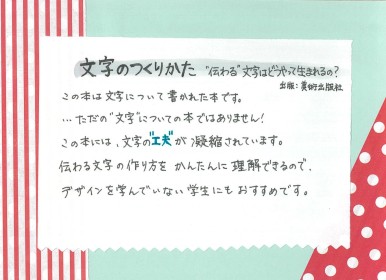 文字のつくりかた "伝わる"文字はどうやって生まれるの?
出版:美術出版社
この本は文字について書かれた本です。
…ただの"文字"についての本ではありません!
この本には、文字の"工夫"が凝縮されています。
伝わる文字の作り方を かんたんに理解できるので、
デザインを学んでいない学生にもおすすめです。